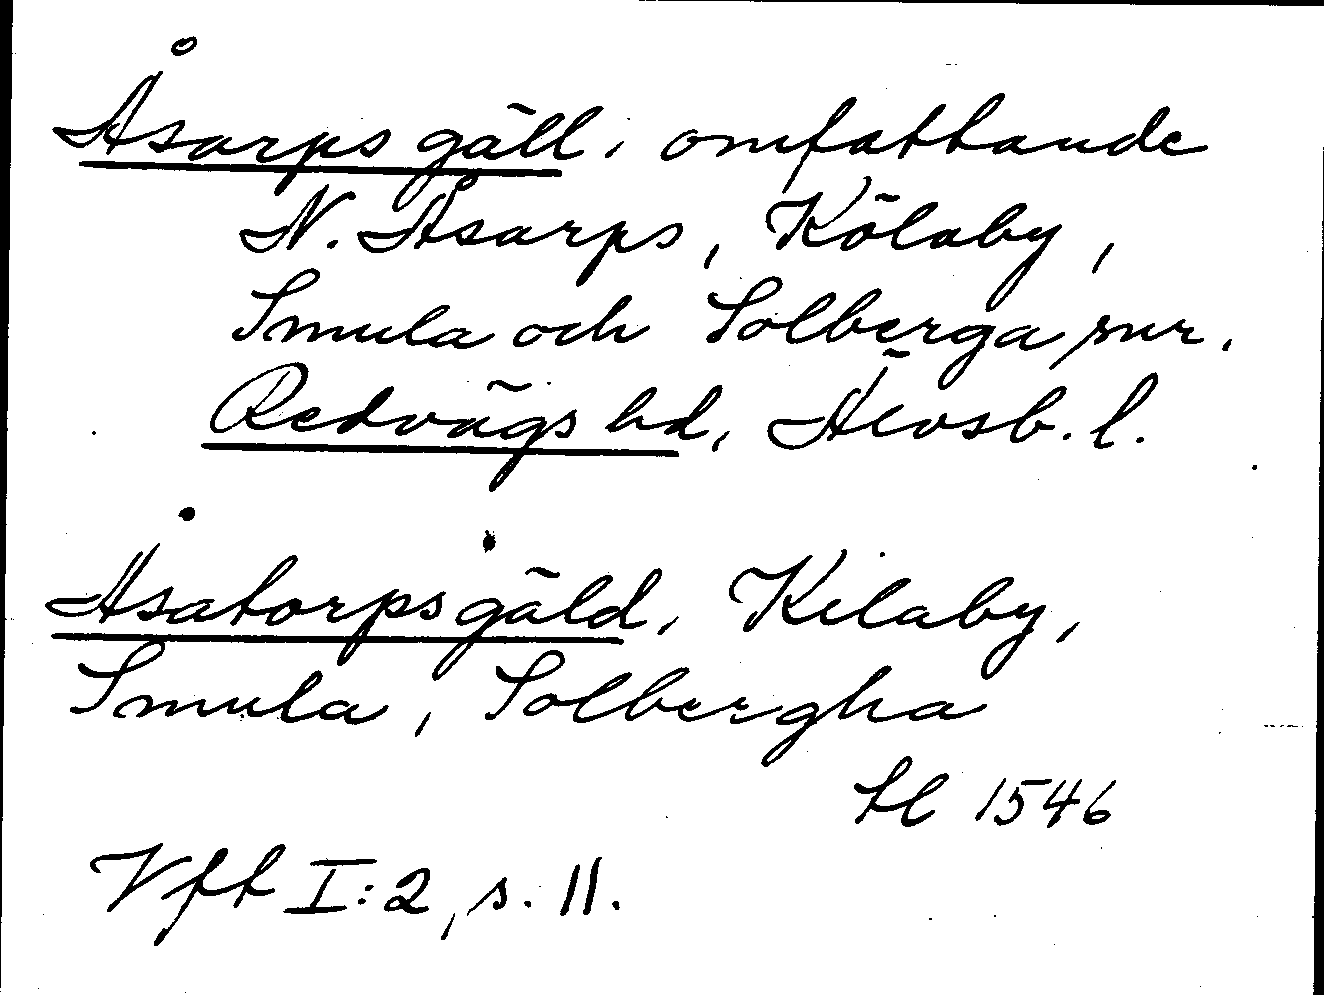 Åsarps gäll, omfattande
N. Åsarps, Kölaby,
Smula och Solberga snr.
Redvägs hd, Älvsb. l.
Åsatorps gäld, Kilaby,
Smula, Solbergha
tl 1546
Vft I:2, s. 11.